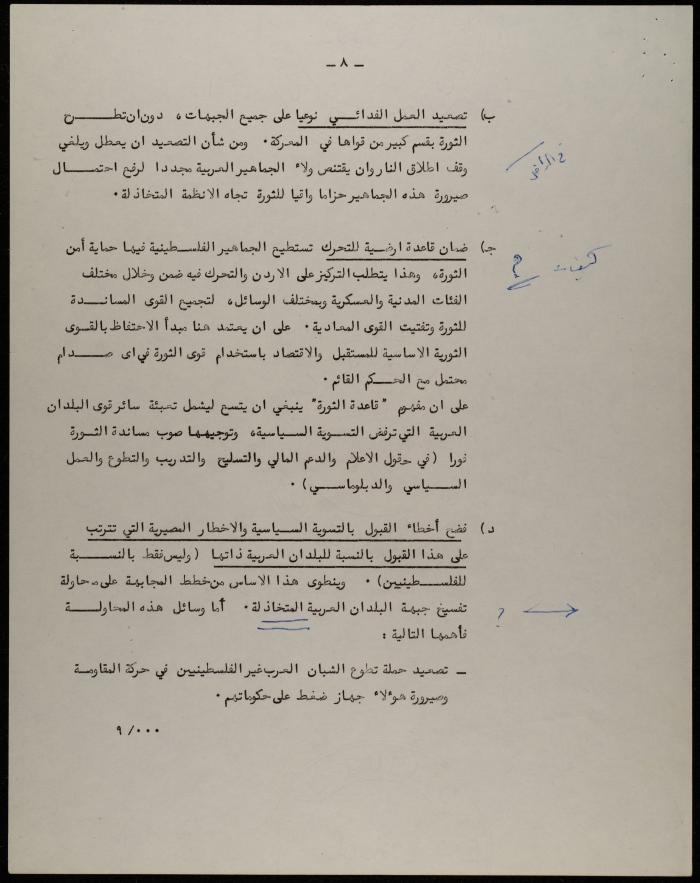 - ٨ -
ب) تصعيد العمل الفدائي نوعيا على جميع الجبهات، دون ان تطرح
الثورة بقسم كبير من قواها في المعركة. ومن شأن التصعيد ان يعطل ويلغي
وقف اطلاق النار وان يقتنص ولاء الجماهير العربية مجددا لرفع احتمال
صيرورة هذه الجماهير حزاما واقيا للثورة تجاه الانظمة المتخاذلة.
ج) ضمان قاعدة ارضية للتحرك تستطيع الجماهير الفلسطينية فيها حماية أمن
كيف
الثورة، وهذا يتطلب التركيز على الاردن والتحرك فيه ضمن وخلال مختلف
الفئات المدنية والعسكرية وبمختلف الوسائل، لتجميع القوى المساندة
للثورة وتفتيت القوى المعادية. على ان يعتمد هنا مبدأ الاحتفاظ بالقوى
الثورية الاساسية للمستقبل والاقتصاد باستخدام قوى الثورة في اى صدام
محتمل مع الحكم القائم.
على ان مفهوم "قاعدة الثورة" ينبغي ان يتسع ليشمل تعبئة سائر قوى البلدان
العربية التي ترفض التسوية السياسية، وتوجيهها صوب مساندة الثورة
فورا (في حقول الاعلام والدعم المالي والتسليح والتدريب والتطوع والعمل
السياسي والدبلوماسي).
د) فضح أخطاء القبول بالتسوية السياسية والاخطار المصيرية التي تترتب
على هذا القبول بالنسبة للبلدان العربية ذاتها (وليس فقط بالنسبة
للفلسطينيين). وينطوى هذا الاساس من خطط المجابهة على محاولة
تفسيخ جبهة البلدان العربية المتخاذلة. أما وسائل هذه المحاولة
؟
فأهمها التالية:
- تصعيد حملة تطوع الشبان العرب غير الفلسطينيين في حركة المقاومة
وصيرورة هوءلاء جهاز ضغط على حكوماتهم.
٩/...